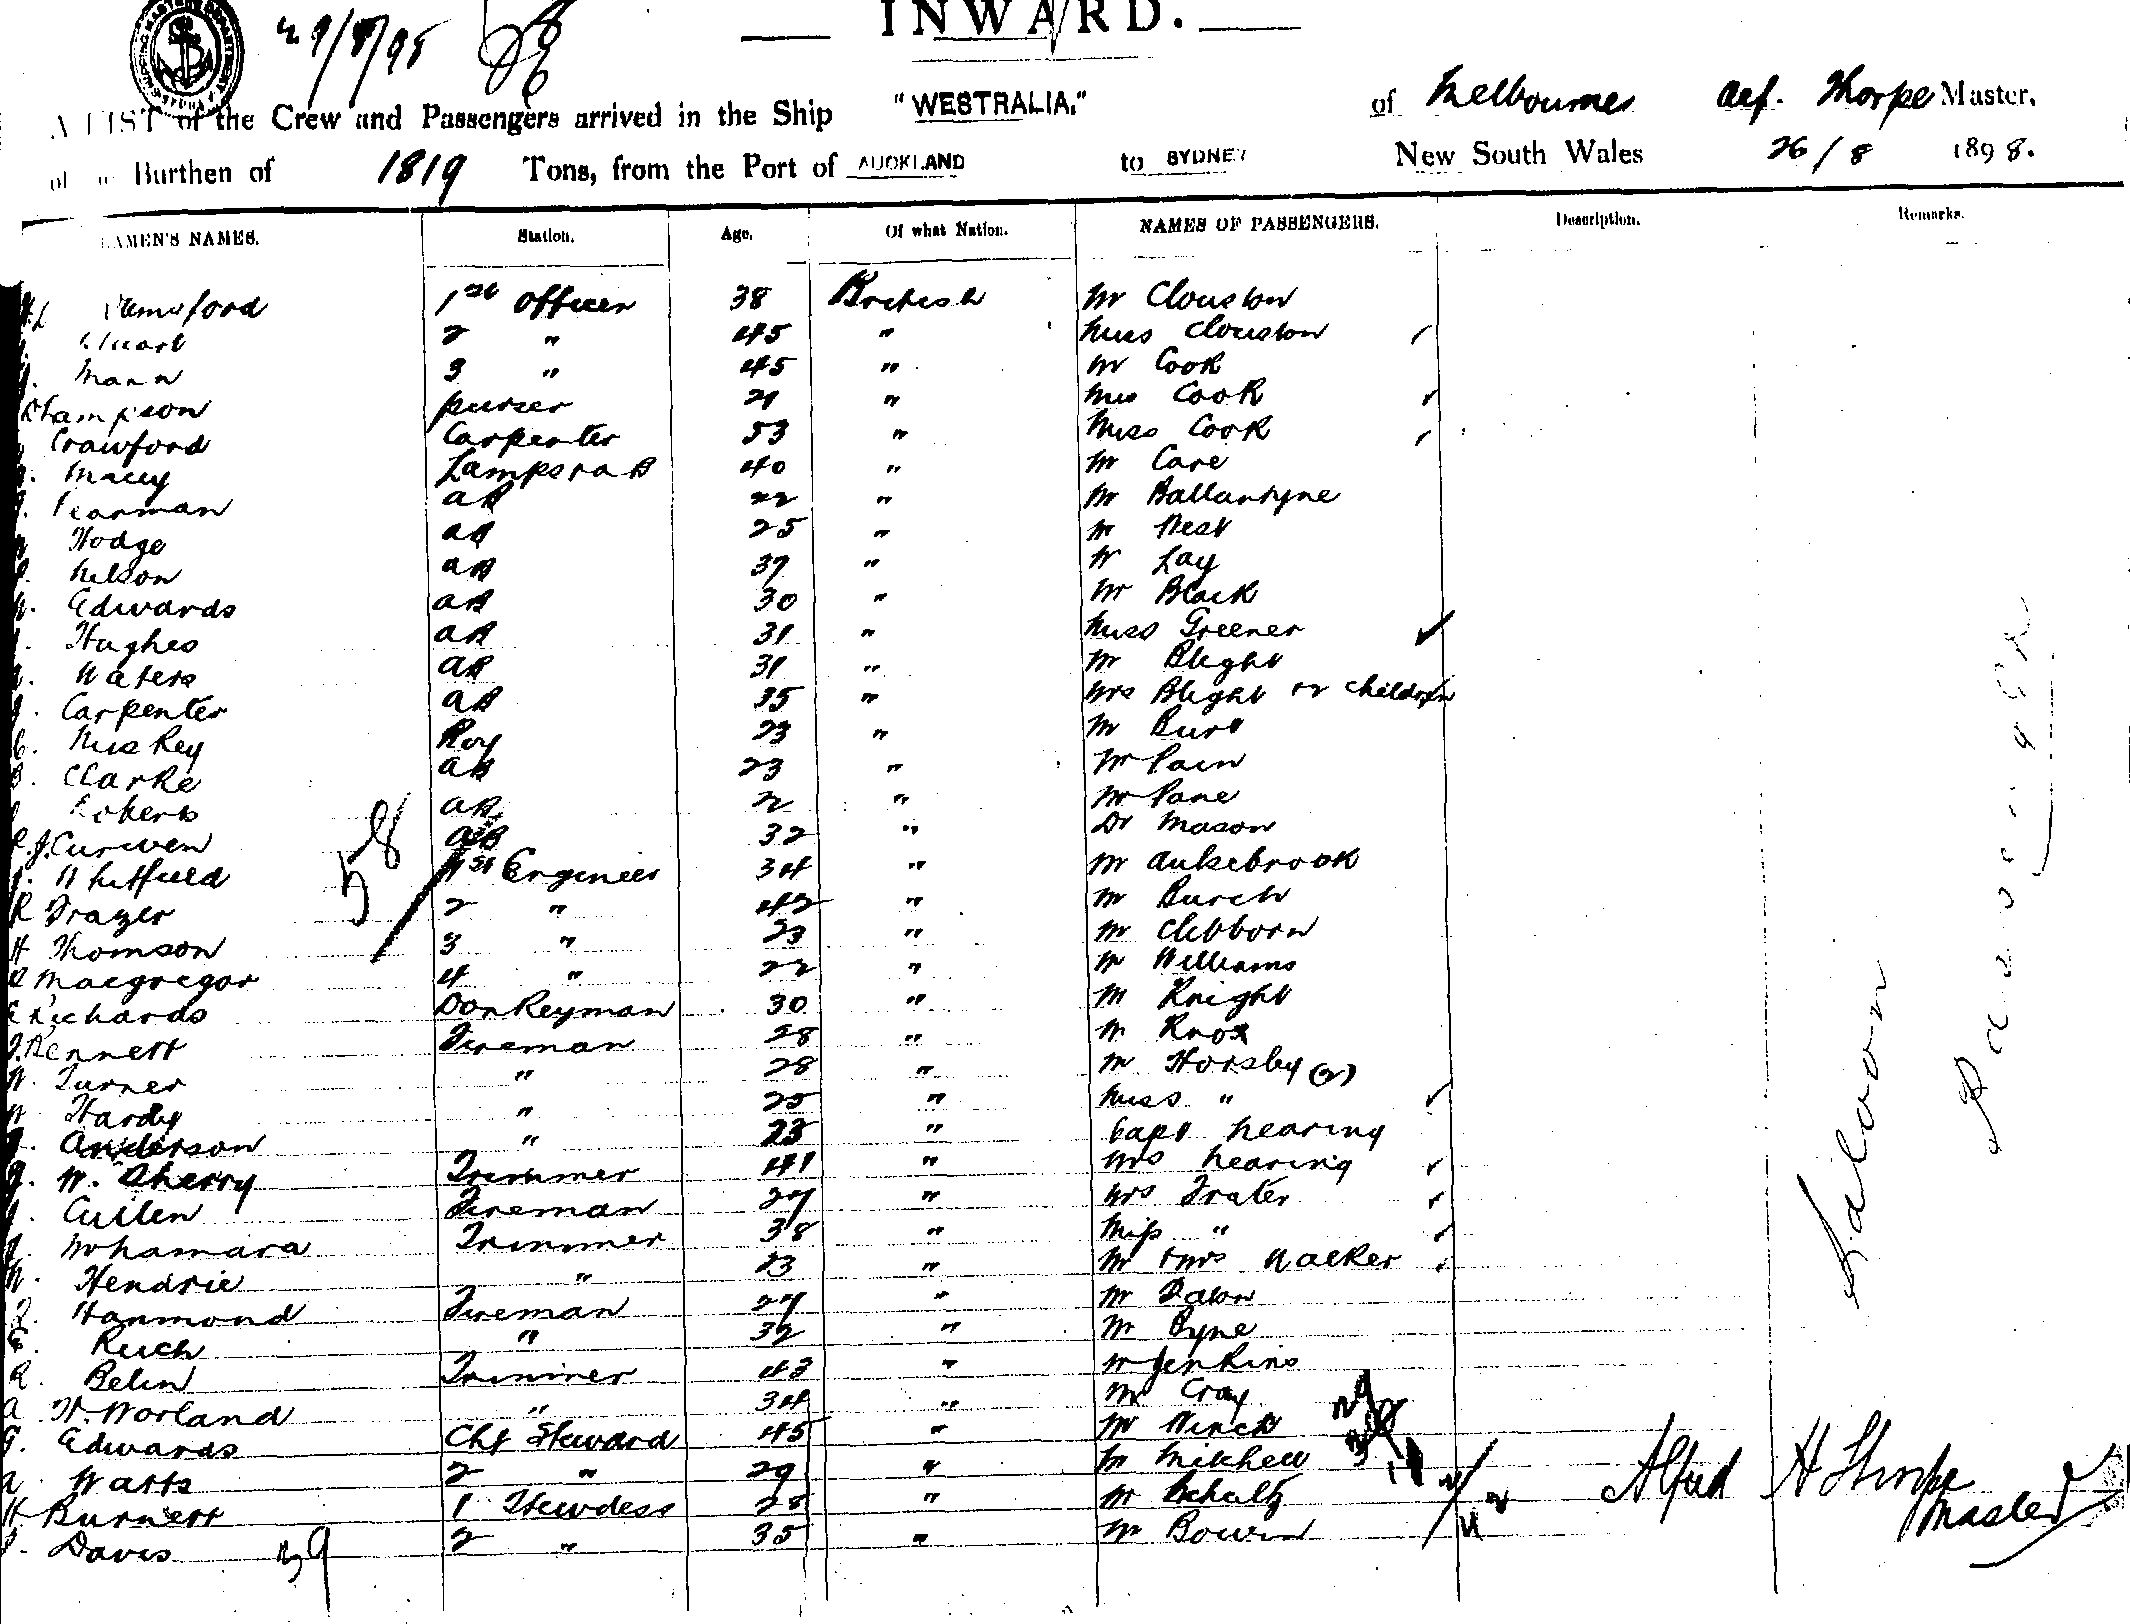 INWARD.
29/8/98
A LIST of the Crew and Passengers arrived in the Ship "WESTRALIA." of Melbourne Alf. Thorpe Master,
of Burthen of 1819 Tons, from the Port of AUCKLAND to SYDNEY New South Wales 26/8 1898.
NAMES. Station. Age. Of what Nation. NAMES OF PASSENGERS. Description. Remarks.
1st Officer 38 British Mr Clouston
Stuart 2 " 45 " Miss Clouston
J. Mann 3 " 45 " Mr Cook
purser 21 " Mrs Cook
Crawford Carpenter 53 " Miss Cook
Macey Lamps 40 " Mr Care
Pearman AB 22 " Mr Ballantyne
Hodge AB 25 " Mr
Nelson AB 37 " Mr Lay
Edwards AB 30 " Mr Black
Hughes AB 31 " Miss Greener
Waters AB 31 " Mr Blight
J. Carpenter AB 35 " Mrs Blight children
Boy 23 " Mr Burt
Clarke AB 23 " Mr Pain
Roberts AB 22 " Mr Pane
Curwen AB 32 " Dr Mason
58
Whitfield 1st Engineer 34 " Mr
R Frazer 2 " 42 " Mr Burch
H Thomson 3 " 23 " Mr Clibborn
Macgregor 4 " 22 " Mr Williams
Richards Donkeyman 30 " Mr Knight
J. Kennett Fireman 28 " Mr Knox
W. Turner " 28 " Mr Horsby (2)
Hardy " 25 " Miss "
J. Anderson " 23 " Capt Nearing
J. W. Sherry Trimmer 41 " Mrs Nearing
J. Cullen Fireman 27 " Mrs Frater
J. McNamara Trimmer 38 " Miss "
Hendrie " 23 " Mr & Mrs Walker
Hammond Fireman 27 " Mr
" 32 " Mr Pyne
R. Belin Trimmer 43 " Mr Jenkins
A W. Worland " 34 " Mr Cray
Edwards Chf Steward 45 " Mr Winch
Watts 2 " 29 " Mr Mitchell
H Burnett 1 Stewdess 28 " Mr Schultz
Davis 2 " 35 " Mr Bowen
39
Saloon
Passenger
Alfred H Thorpe
Master